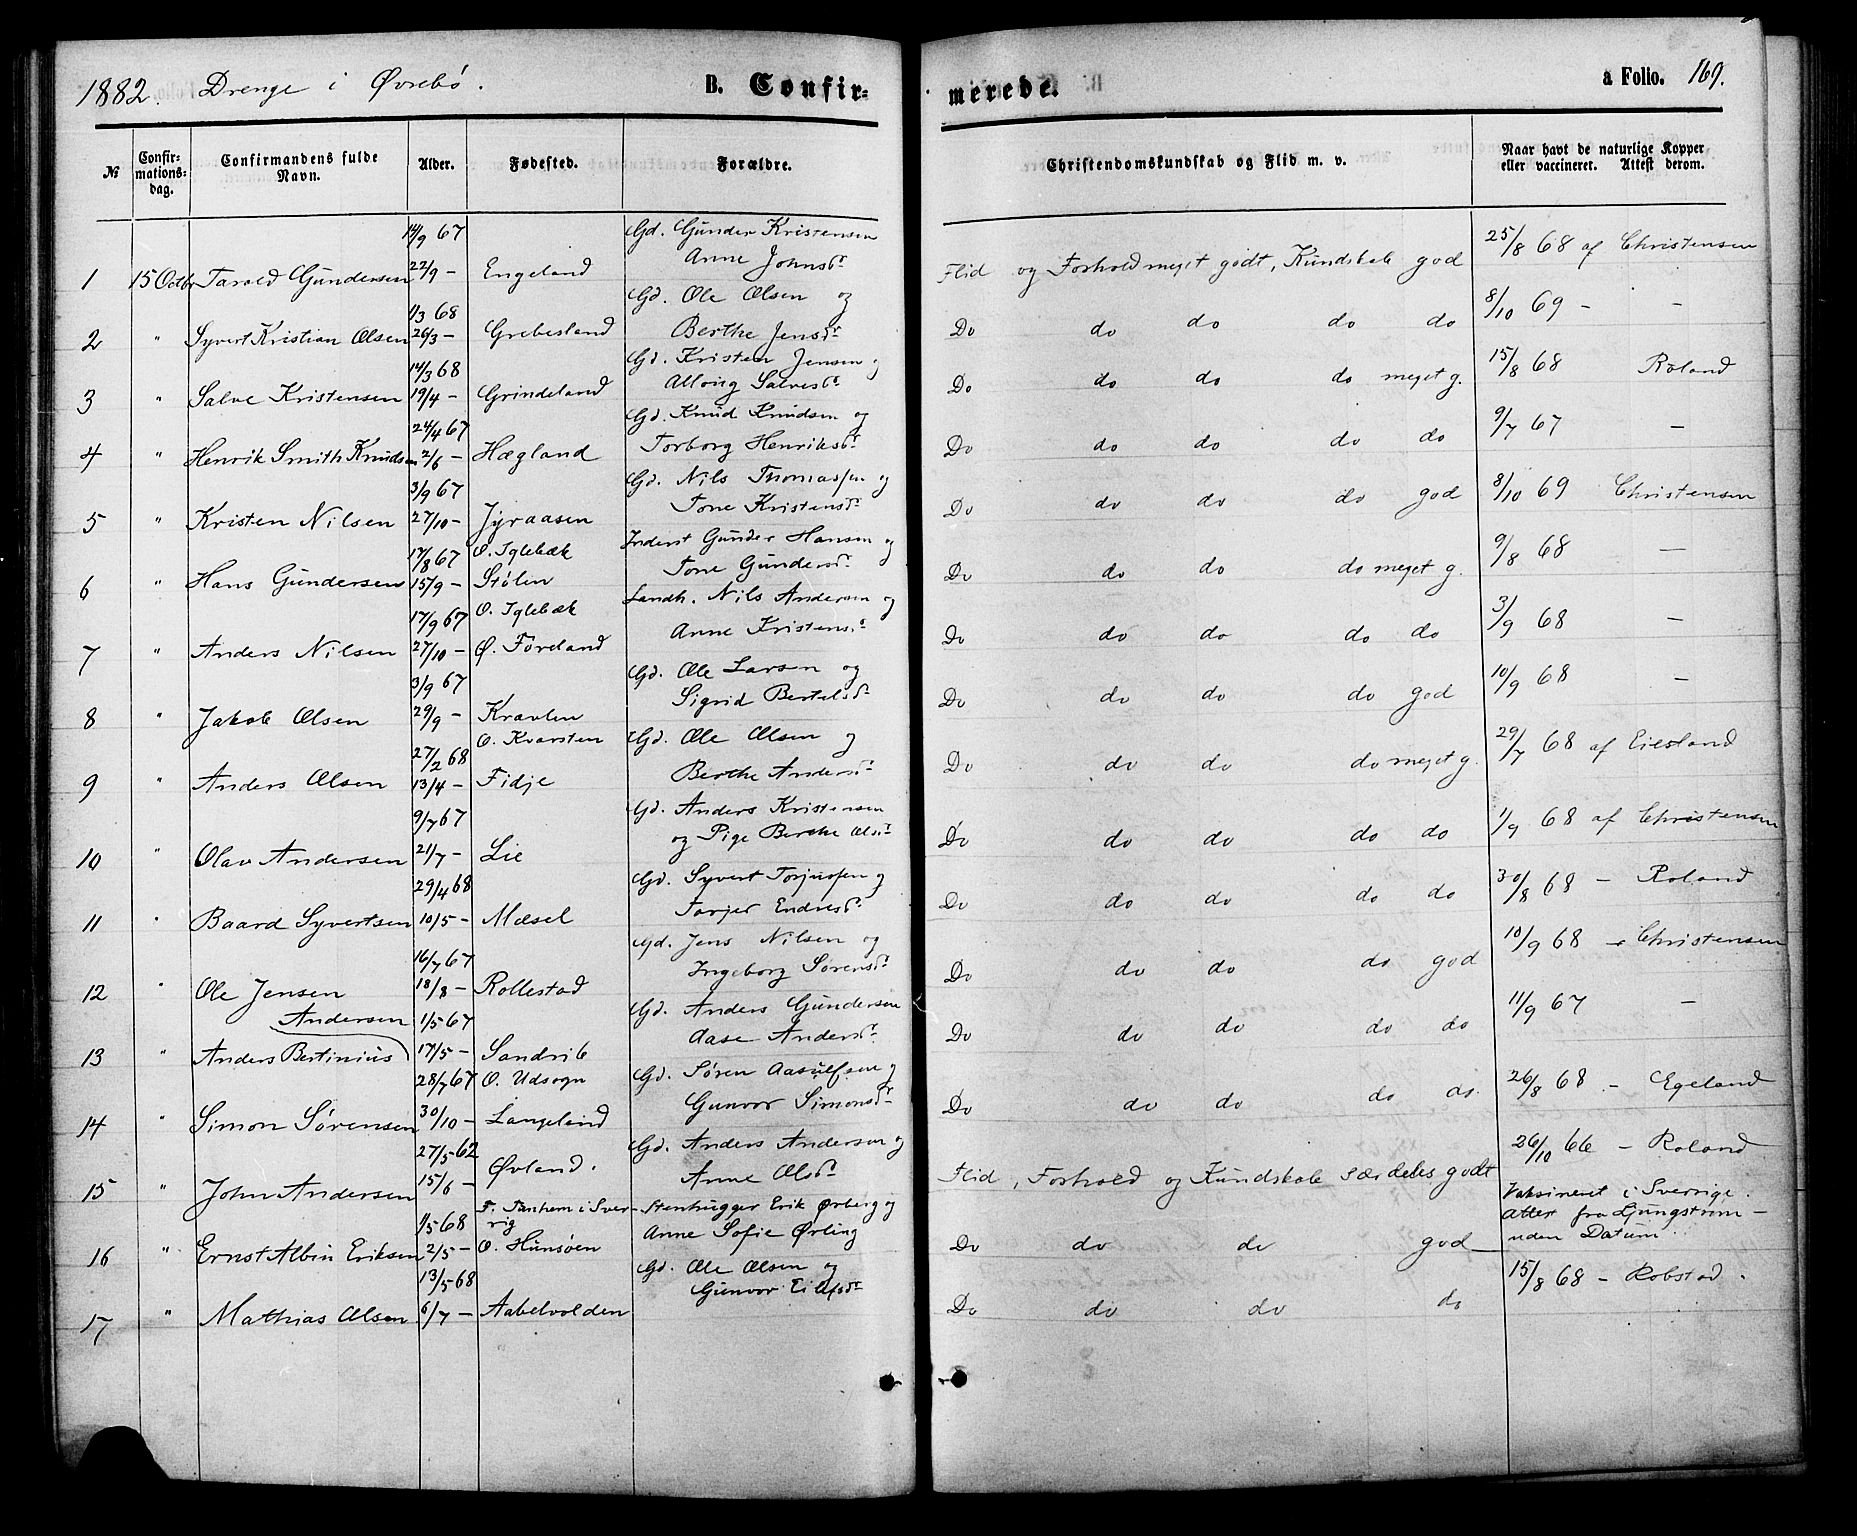 1882. Drenge i Øvrebø. B. Confir- merede. a Folio. 169.
№ Confir-mations-dag. Confirmandens fulde Navn. Alder. Fødested. Forældre. Christendomskundskab og Flid m. v. Naar havt de naturlige Kopper eller vaccineret. Attest derom.
14/9 67 Gd. Gunder Kristensen
1 15 Octbr Tarald Gundersen 22/9 – Engeland Anne Johnsdr Flid og Forhold meget godt, Kundskab god 25/8 68 af Christensen
1/3 68 Gd. Ole Olsen og
2 " Syvert Kristian Olsen 26/3 – Grebesland Berthe Jensdr Do do do do do 8/10 69 – –
14/3 68 Gd. Kristen Jensen og
3 " Salve Kristensen 19/4 – Grindeland Salvesdr Do do do do meget g. 15/8 68 Roland
24/4 67 Gd. Knud Knudsen og
4 " Henrik Smith Knudsen 2/6 – Hægland Torborg Henriksdr Do do do do do 9/7 67 –
3/9 67 Gd. Nils Thomassen og
5 " Kristen Nilsen 27/10 – Jyraasen Tone Kristensdr Do do do do god 8/10 69 Christensen
17/8 67 O. Iglebæk Inderst Gunder Hansen og
6 " Hans Gundersen 15/9 – Stølen Tone Gundersdr Do do do do meget g. 9/8 68 –
17/9 67 O. Iglebæk Landh. Nils Andersen og
7 " Anders Nilsen 27/10 – Ø. Føreland Anne Kristensdr Do do do do do 3/9 68 –
3/9 67 Gd. Ole Larsen og
8 " Jakob Olsen 29/9 – Kravlen Sigrid Bertelsdr Do do do do god 10/9 68 –
27/2 68 O. Kvarsten Gd. Ole Olsen og
9 " Anders Olsen 13/4 – Fidje Berthe Andersdr Do do do do meget g. 29/7 68 af Eiesland
9/7 67 Gd. Anders Kristensen
10 " Olav Andersen 21/7 – Lie og Pige Berthe Olsdr Do do do do do 1/9 68 af Christensen
29/4 68 Gd. Syvert Torjussen og
11 " Baard Syvertsen 10/5 – Mæsel Torjer Endresdr Do do do do do 30/8 68 – Roland
16/7 67 Gd. Jens Nilsen og
12 " Ole Jensen 18/8 – Rollestad Ingeborg Sørensdr Do do do do god 10/9 68 – Christensen
Andersen 1/5 67 Gd. Anders Gundersen
13 " Anders Bertinius 17/5 – Sandrib Aase Andersdr Do do do do do 11/9 67 –
28/7 67 O. Udsogn Gd. Søren Aasulfsen og
14 " Simon Sørensen 30/10 – Langeland Gunvor Simonsdr Do do do do do. 26/8 68 – Egeland
27/5 62 Gd. Anders Andersen og
15 " John Andersen 15/6 – Øvland. Anne Olsdr Flid, Forhold og Kundskab særdeles godt 26/10 66 – Roland
1/5 68 F. Tanhem i Sver-rig Stenhugger Erik Ørberg og
16 " Ernst Albin Eriksen 2/5 – O. Hunsøen Anne Sofie Ørling Do do do god Vaksineret i Sverrige. Attest fra Ljungstrøm – uden Datum.
13/5 68 Gd. Ole Olsen og
17 " Mathias Olsen 6/7 – Aabelvolden Gunvor Eilefsdr Do do do do 15/8 68 – Robstad.